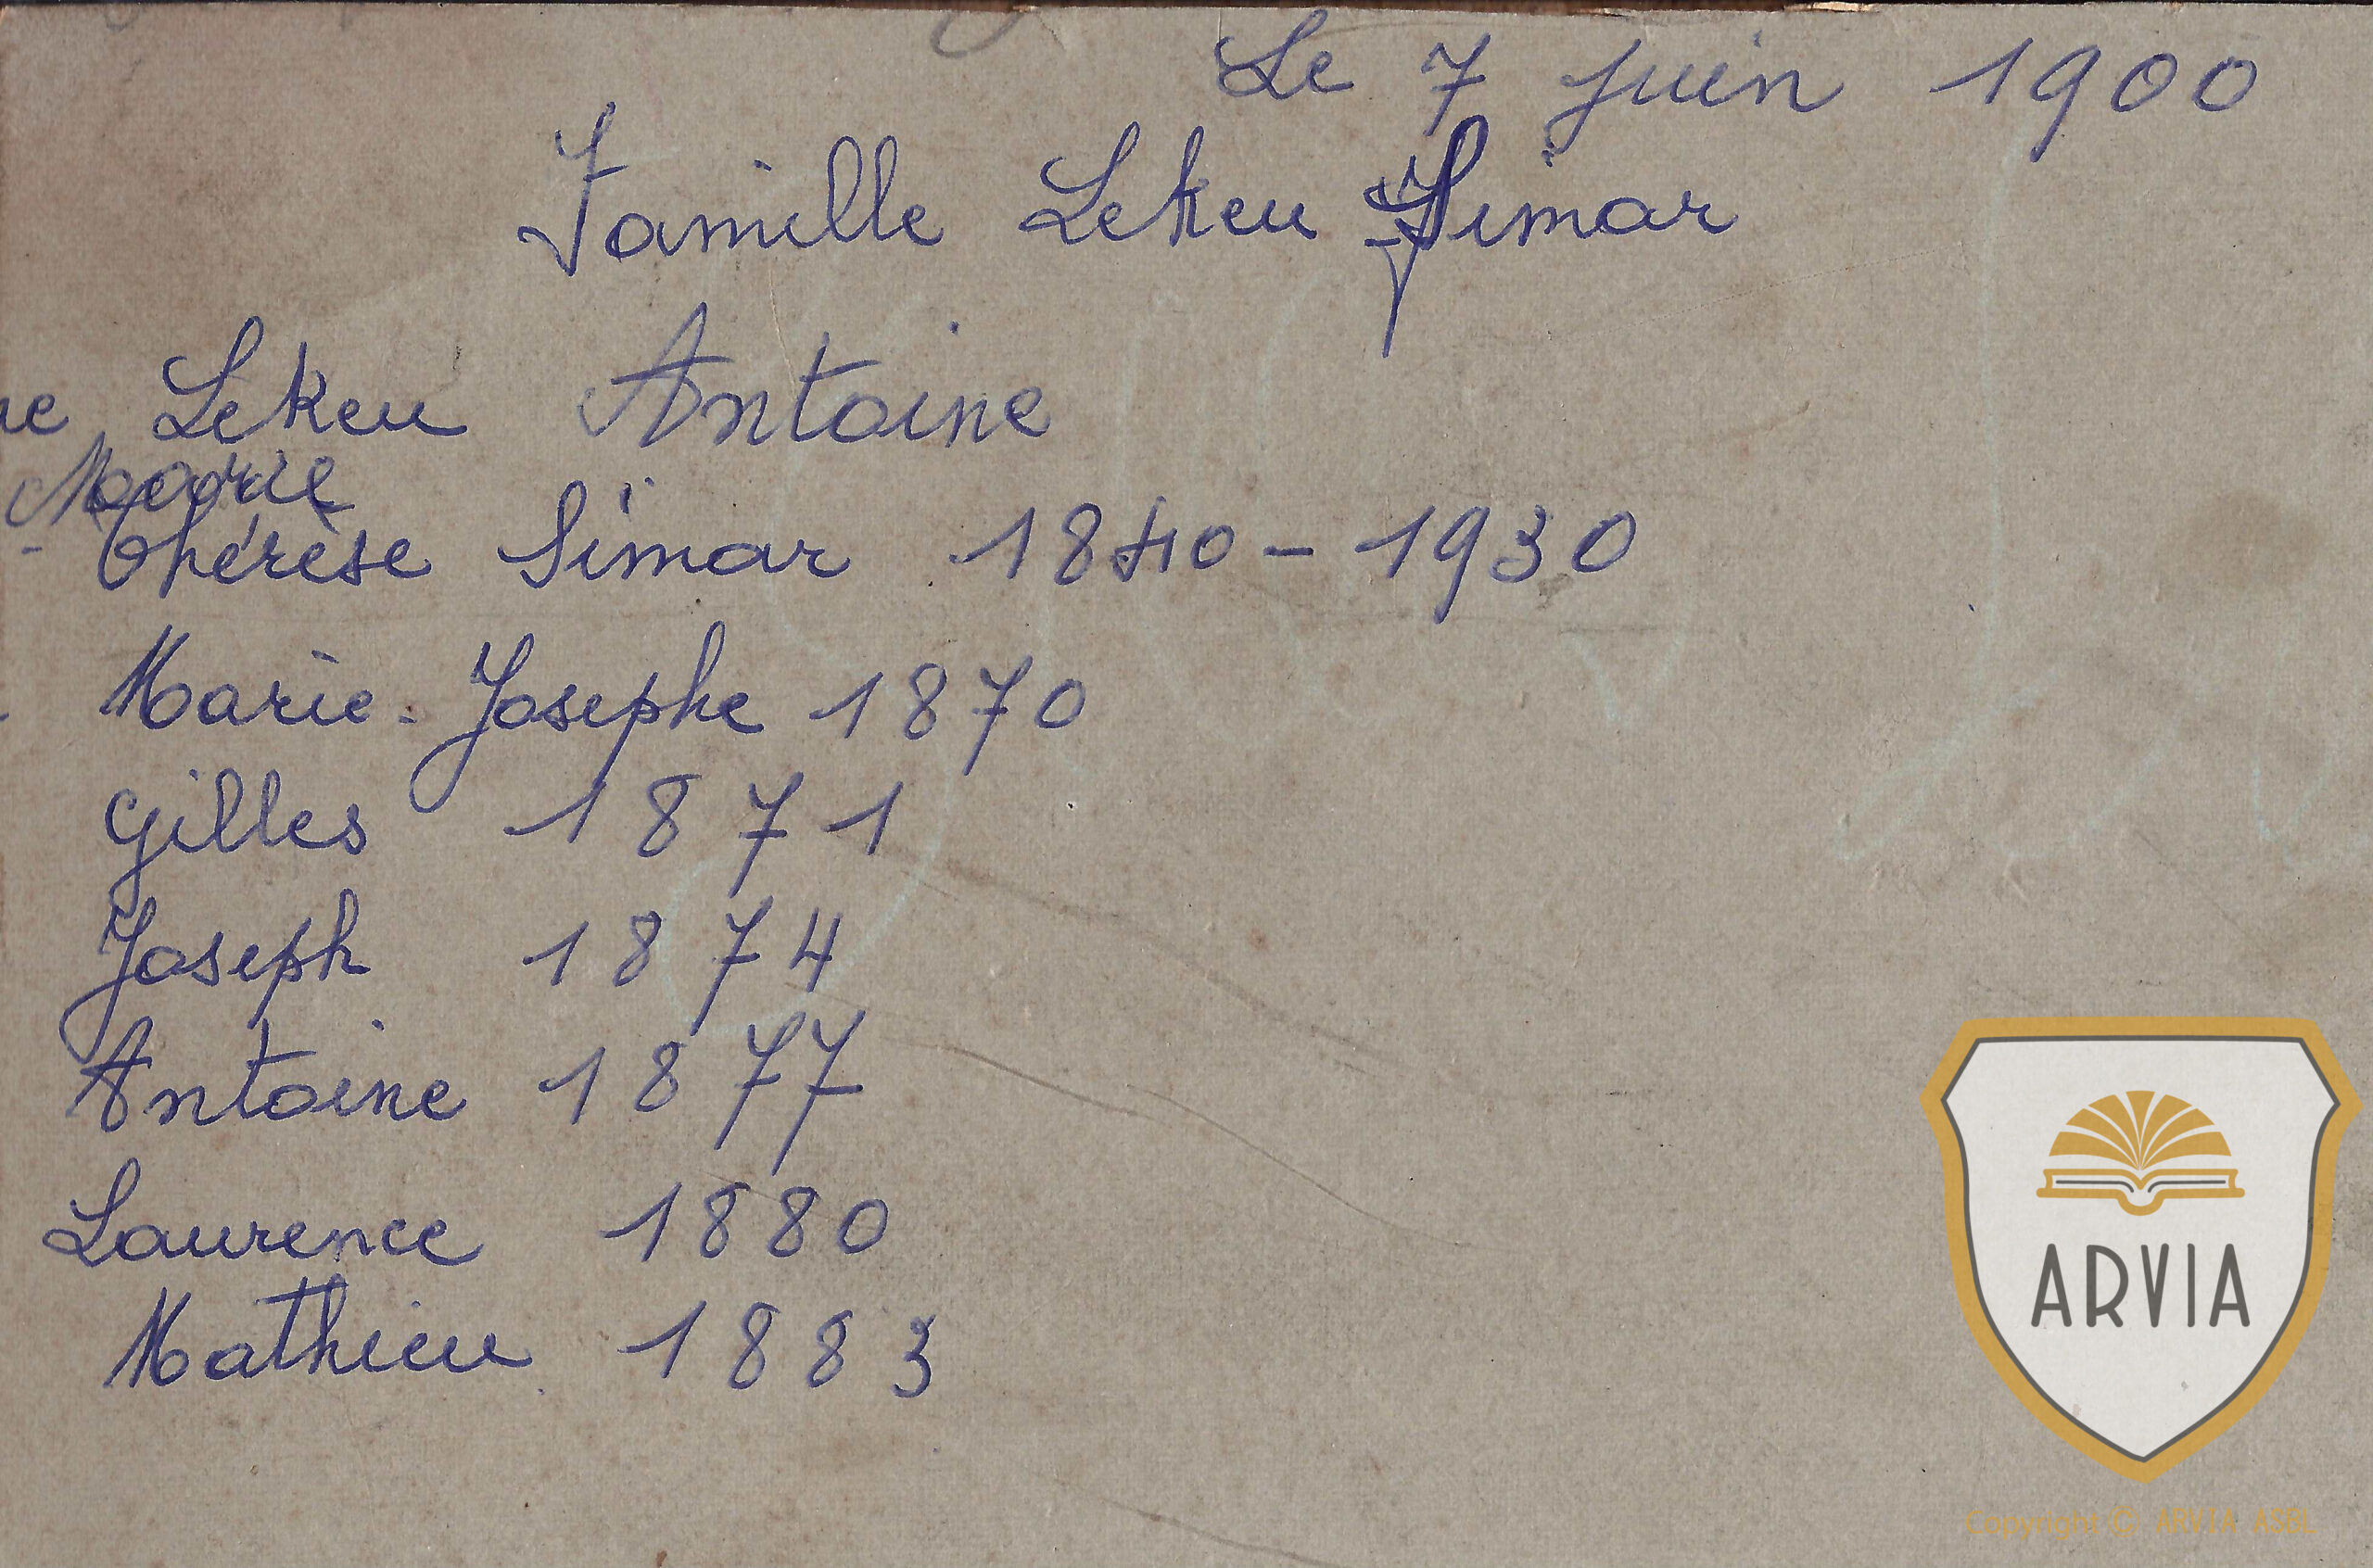 Le 7 juin 1900
Famille Lekeu Simar
Lekeu Antoine
Marie
- Thérèse Simar 1840 - 1930
- Marie - Josephe 1870
Gilles 1871
Joseph 1874
Antoine 1877
Laurence 1880
Mathieu 1883
ARVIA
Copyright © ARVIA ASBL